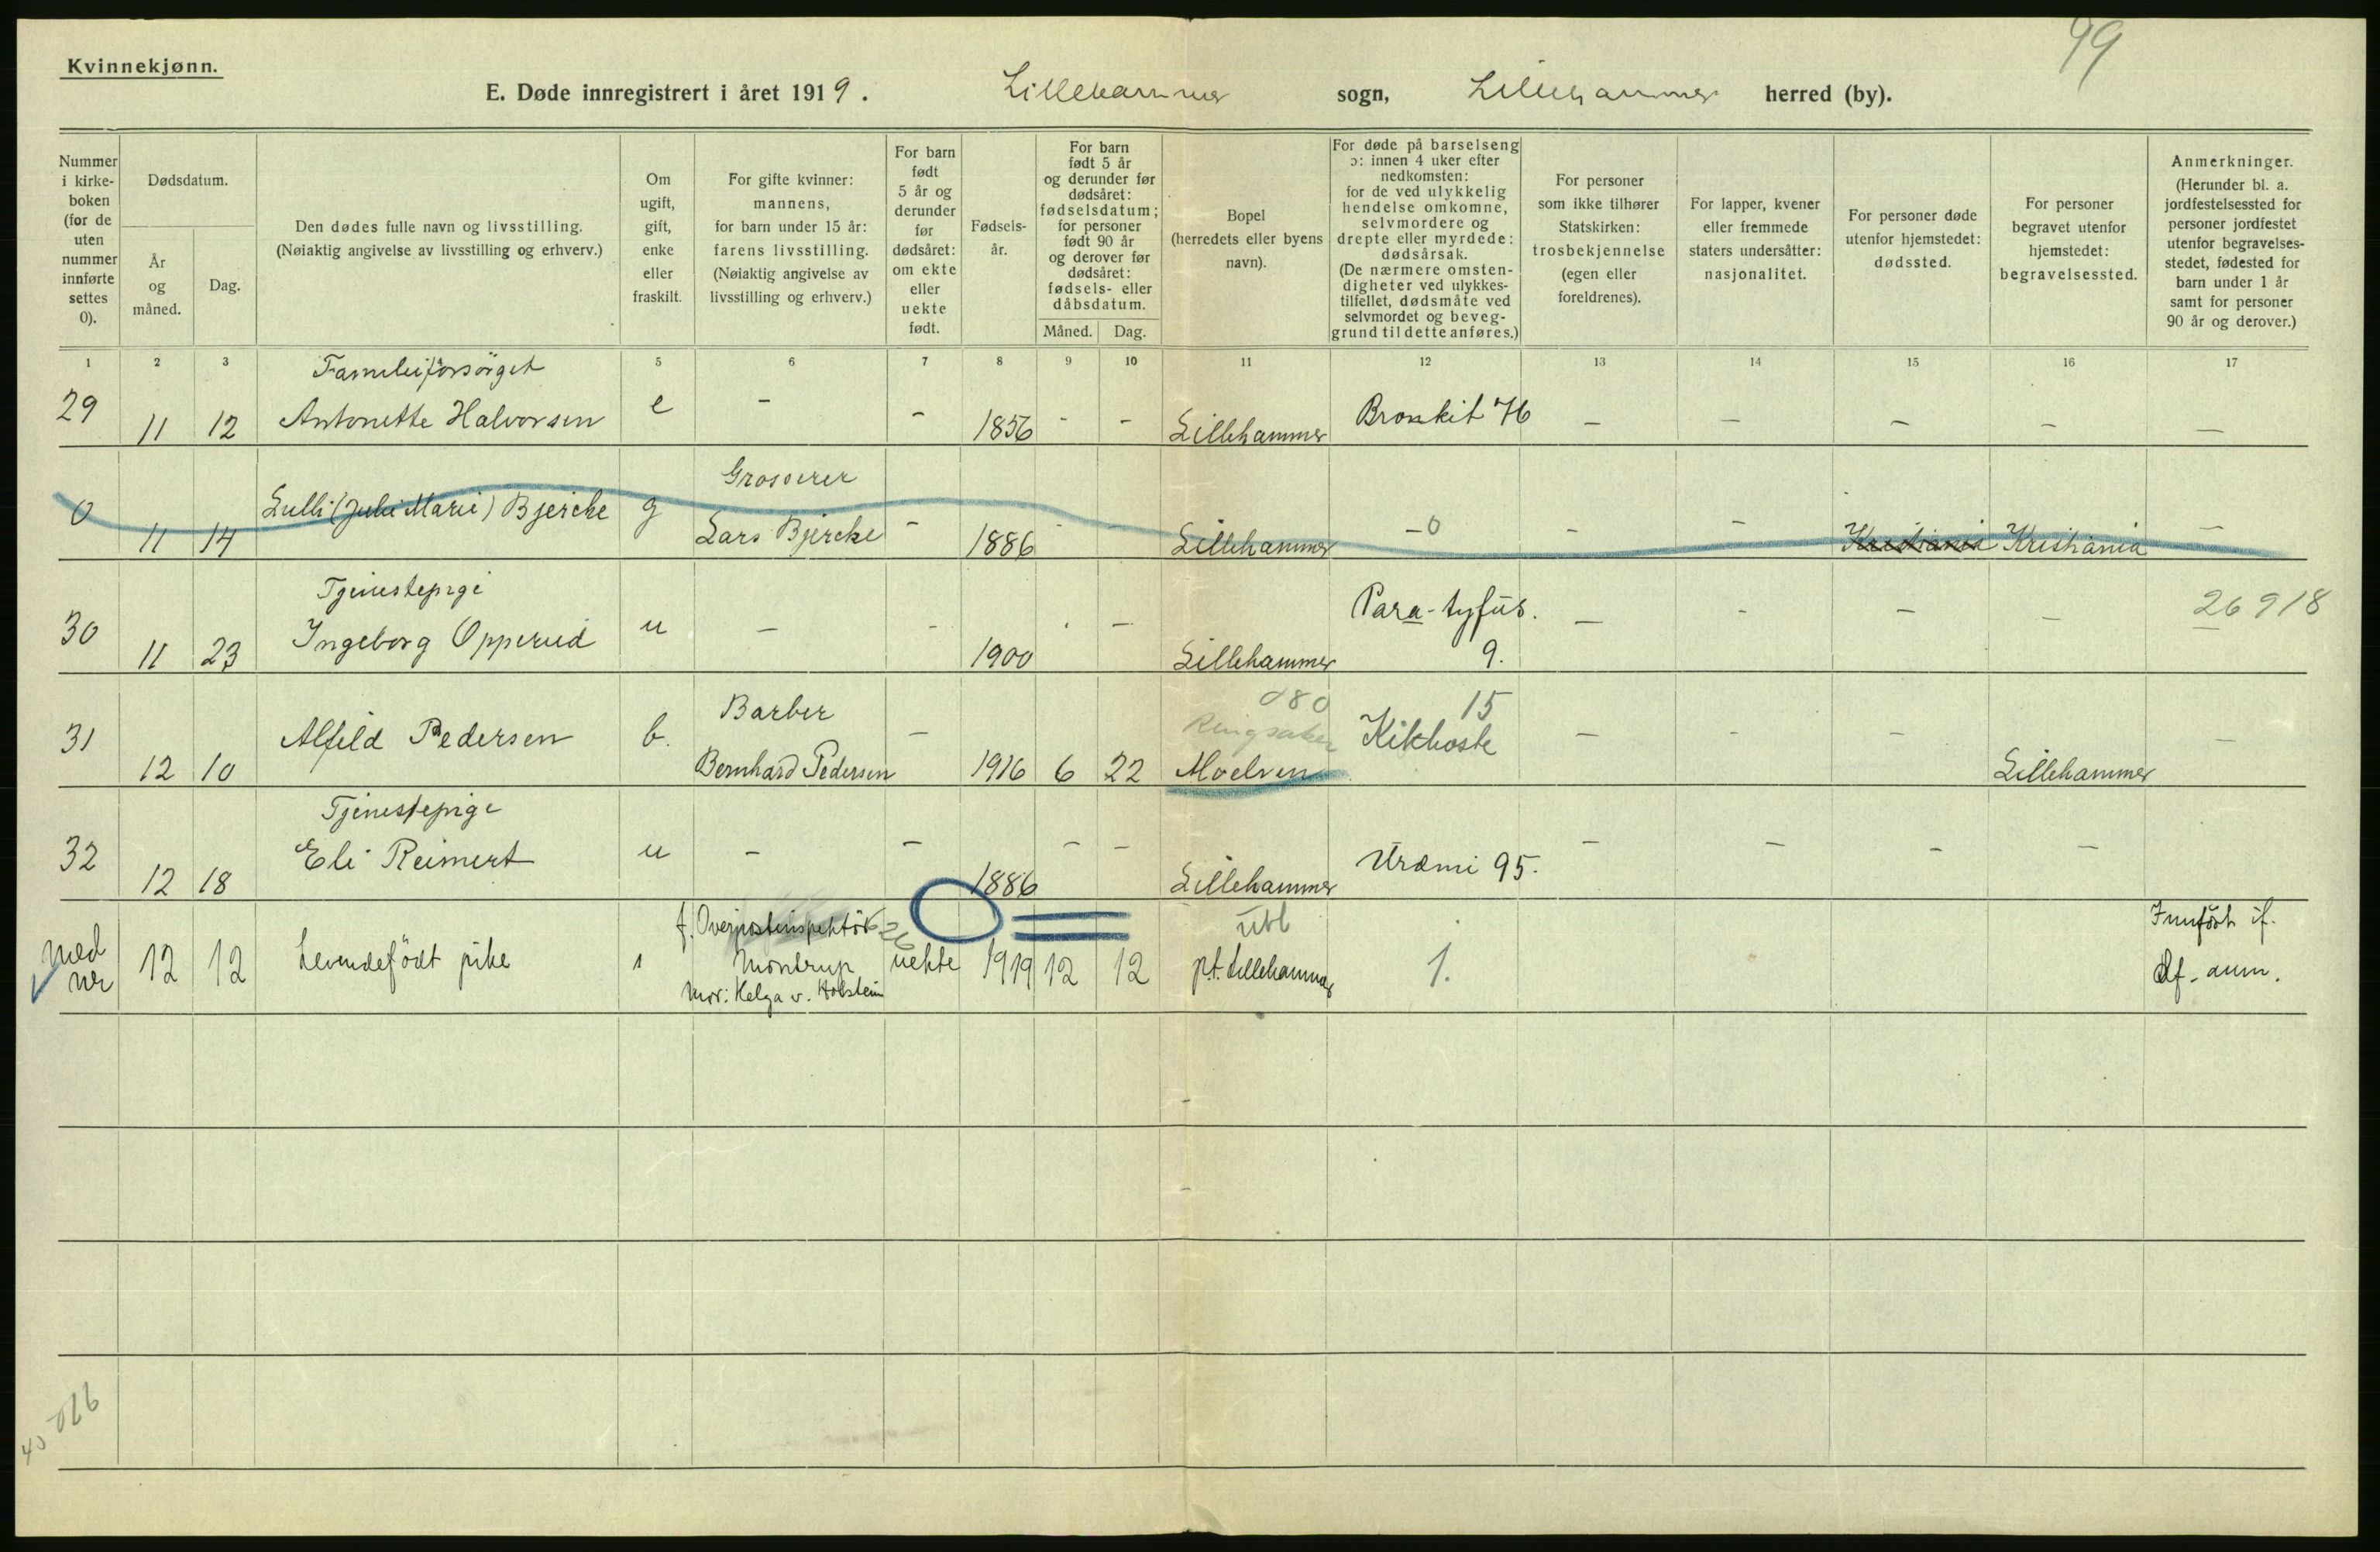 99
Kvinnekjønn.
E. Døde innregistrert i året 1919. Lillehammer sogn, Lillehammer herred (by).
Nummer i kirke-boken (for de uten nummer innførte settes 0).
Dødsdatum.
År og måned.
Dag.
Den dødes fulle navn og livsstilling.
(Nøiaktig angivelse av livsstilling og erhverv.)
Om ugift, gift, enke eller fraskilt.
For gifte kvinner: mannens, for barn under 15 år: farens livsstilling. (Nøiaktig angivelse av livsstilling og erhverv.)
For barn født 5 år og derunder før dødsåret: om ekte eller uekte født.
Fødsels-år.
For barn født 5 år og derunder før dødsåret: fødselsdatum; for personer født 90 år og derover før dødsåret: fødsels- eller dåbsdatum.
Måned.
Dag.
Bopel (herredets eller byens navn).
For døde på barselseng ɔ: innen 4 uker efter nedkomsten: for de ved ulykkelig hendelse omkomne, selvmordere og drepte eller myrdede: dødsårsak. (De nærmere omsten-digheter ved ulykkes-tilfellet, dødsmåte ved selvmordet og beveg-grund til dette anføres.)
For personer som ikke tilhører Statskirken: trosbekjennelse (egen eller foreldrenes).
For lapper, kvener eller fremmede staters undersåtter: nasjonalitet.
For personer døde utenfor hjemstedet: dødssted.
For personer begravet utenfor hjemstedet: begravelsessted.
Anmerkninger. (Herunder bl. a. jordfestelsessted for personer jordfestet utenfor begravelses-stedet, fødested for barn under 1 år samt for personer 90 år og derover.)
1 2 3 5 6 7 8 9 10 11 12 13 14 15 16 17
Familieforsørget
29 11 12 Antonette Halvorsen e - - 1856 - - Lillehammer Bronkit 76 - - - - -
Grosserer
0 11 14 Lulli (Juli Marie) Bjercke g Lars Bjercke - 1886 Lillehammer -0 - - Kristiania Kristiania -
Tjenestepige
30 11 23 Ingeborg Opperud u - - 1900 - Lillehammer Para-tyfus. 9. - - - - 26918
Barber 080 15
Ringsaker
31 12 10 Alfild Pedersen b. Bernhard Pedersen - 1916 6 22 Moelven Kikhoste - - - Lillehammer -
Tjenestepige
32 12 18 Eli Reimert u - - 1886 - - Lillehammer Uræmi 95. - - - -
f. Overpostinspektör 26 utl Innført if.
med nr 12 12 Levendefödt pike Montrup uekte 1919 12 12 pt. Lillehammer 1. df-anm.
Mor: Helga v. Holstein